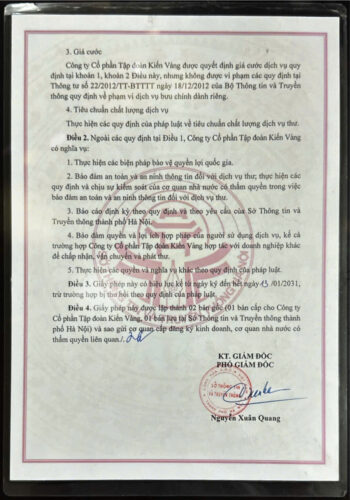 3. Giá cước
Công ty Cổ phần Tập đoàn Kiến Vàng được quyết định giá cước dịch vụ quy
định tại khoản 1, khoản 2 Điều này, nhưng không được vi phạm các quy định tại
Thông tư số 22/2012/TT-BTTTT ngày 18/12/2012 của Bộ Thông tin và Truyền
thông quy định về phạm vi dịch vụ bưu chính dành riêng.
4. Tiêu chuẩn chất lượng dịch vụ
Thực hiện các quy định của pháp luật về tiêu chuẩn chất lượng dịch vụ thư.
Điều 2. Ngoài các quy định tại Điều 1, Công ty Cổ phần Tập đoàn Kiến Vàng
có nghĩa vụ:
1. Thực hiện các biện pháp bảo vệ quyền lợi quốc gia.
2. Bảo đảm an toàn và an ninh thông tin đối với dịch vụ thư; thực hiện các
quy định và chịu sự kiểm soát của cơ quan nhà nước có thẩm quyền trong việc
bảo đảm an toàn và an ninh thông tin đối với dịch vụ thư.
3. Báo cáo định kỳ theo quy định và theo yêu cầu của Sở Thông tin và
Truyền thông thành phố Hà Nội.
4. Bảo đảm quyền và lợi ích hợp pháp của người sử dụng dịch vụ, kể
cả trường hợp Công ty Cổ phần Tập đoàn Kiến Vàng hợp tác với doanh nghiệp khác
để chấp nhận, vận chuyển và phát thư.
5. Thực hiện các quyền và nghĩa vụ khác theo quy định của pháp luật.
Điều 3. Giấy phép này có hiệu lực kể từ ngày ký đến hết ngày 13/01/2031,
trừ trường hợp bị thu hồi theo quy định của pháp luật.
Điều 4. Giấy phép này được lập thành 02 bản gốc (01 bản cấp cho Công ty
Cổ phần Tập đoàn Kiến Vàng, 01 bản lưu tại Sở Thông tin và Truyền thông thành
phố Hà Nội) và sao gửi cơ quan cấp đăng ký kinh doanh, cơ quan nhà nước có
thẩm quyền liên quan./.
KT. GIÁM ĐỐC
PHÓ GIÁM ĐỐC
SỞ THÔNG TIN
VÀ TRUYỀN THÔNG
Nguyễn Xuân Quang